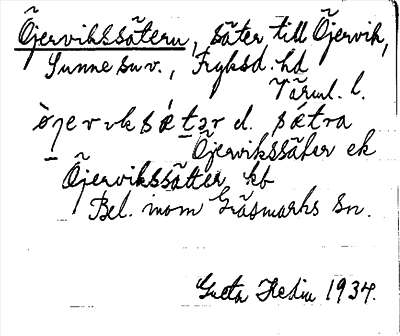 Öjervikssätern, säter till Öjervik,
Sunne sn v., Fryksd. hd
Värml. l.
òjervıksǽtər d. sǽtra
Öjervikssäter ek
Öjervikssätter kb
Bel. inom Gräsmarks sn.
Greta Hedin 1934.